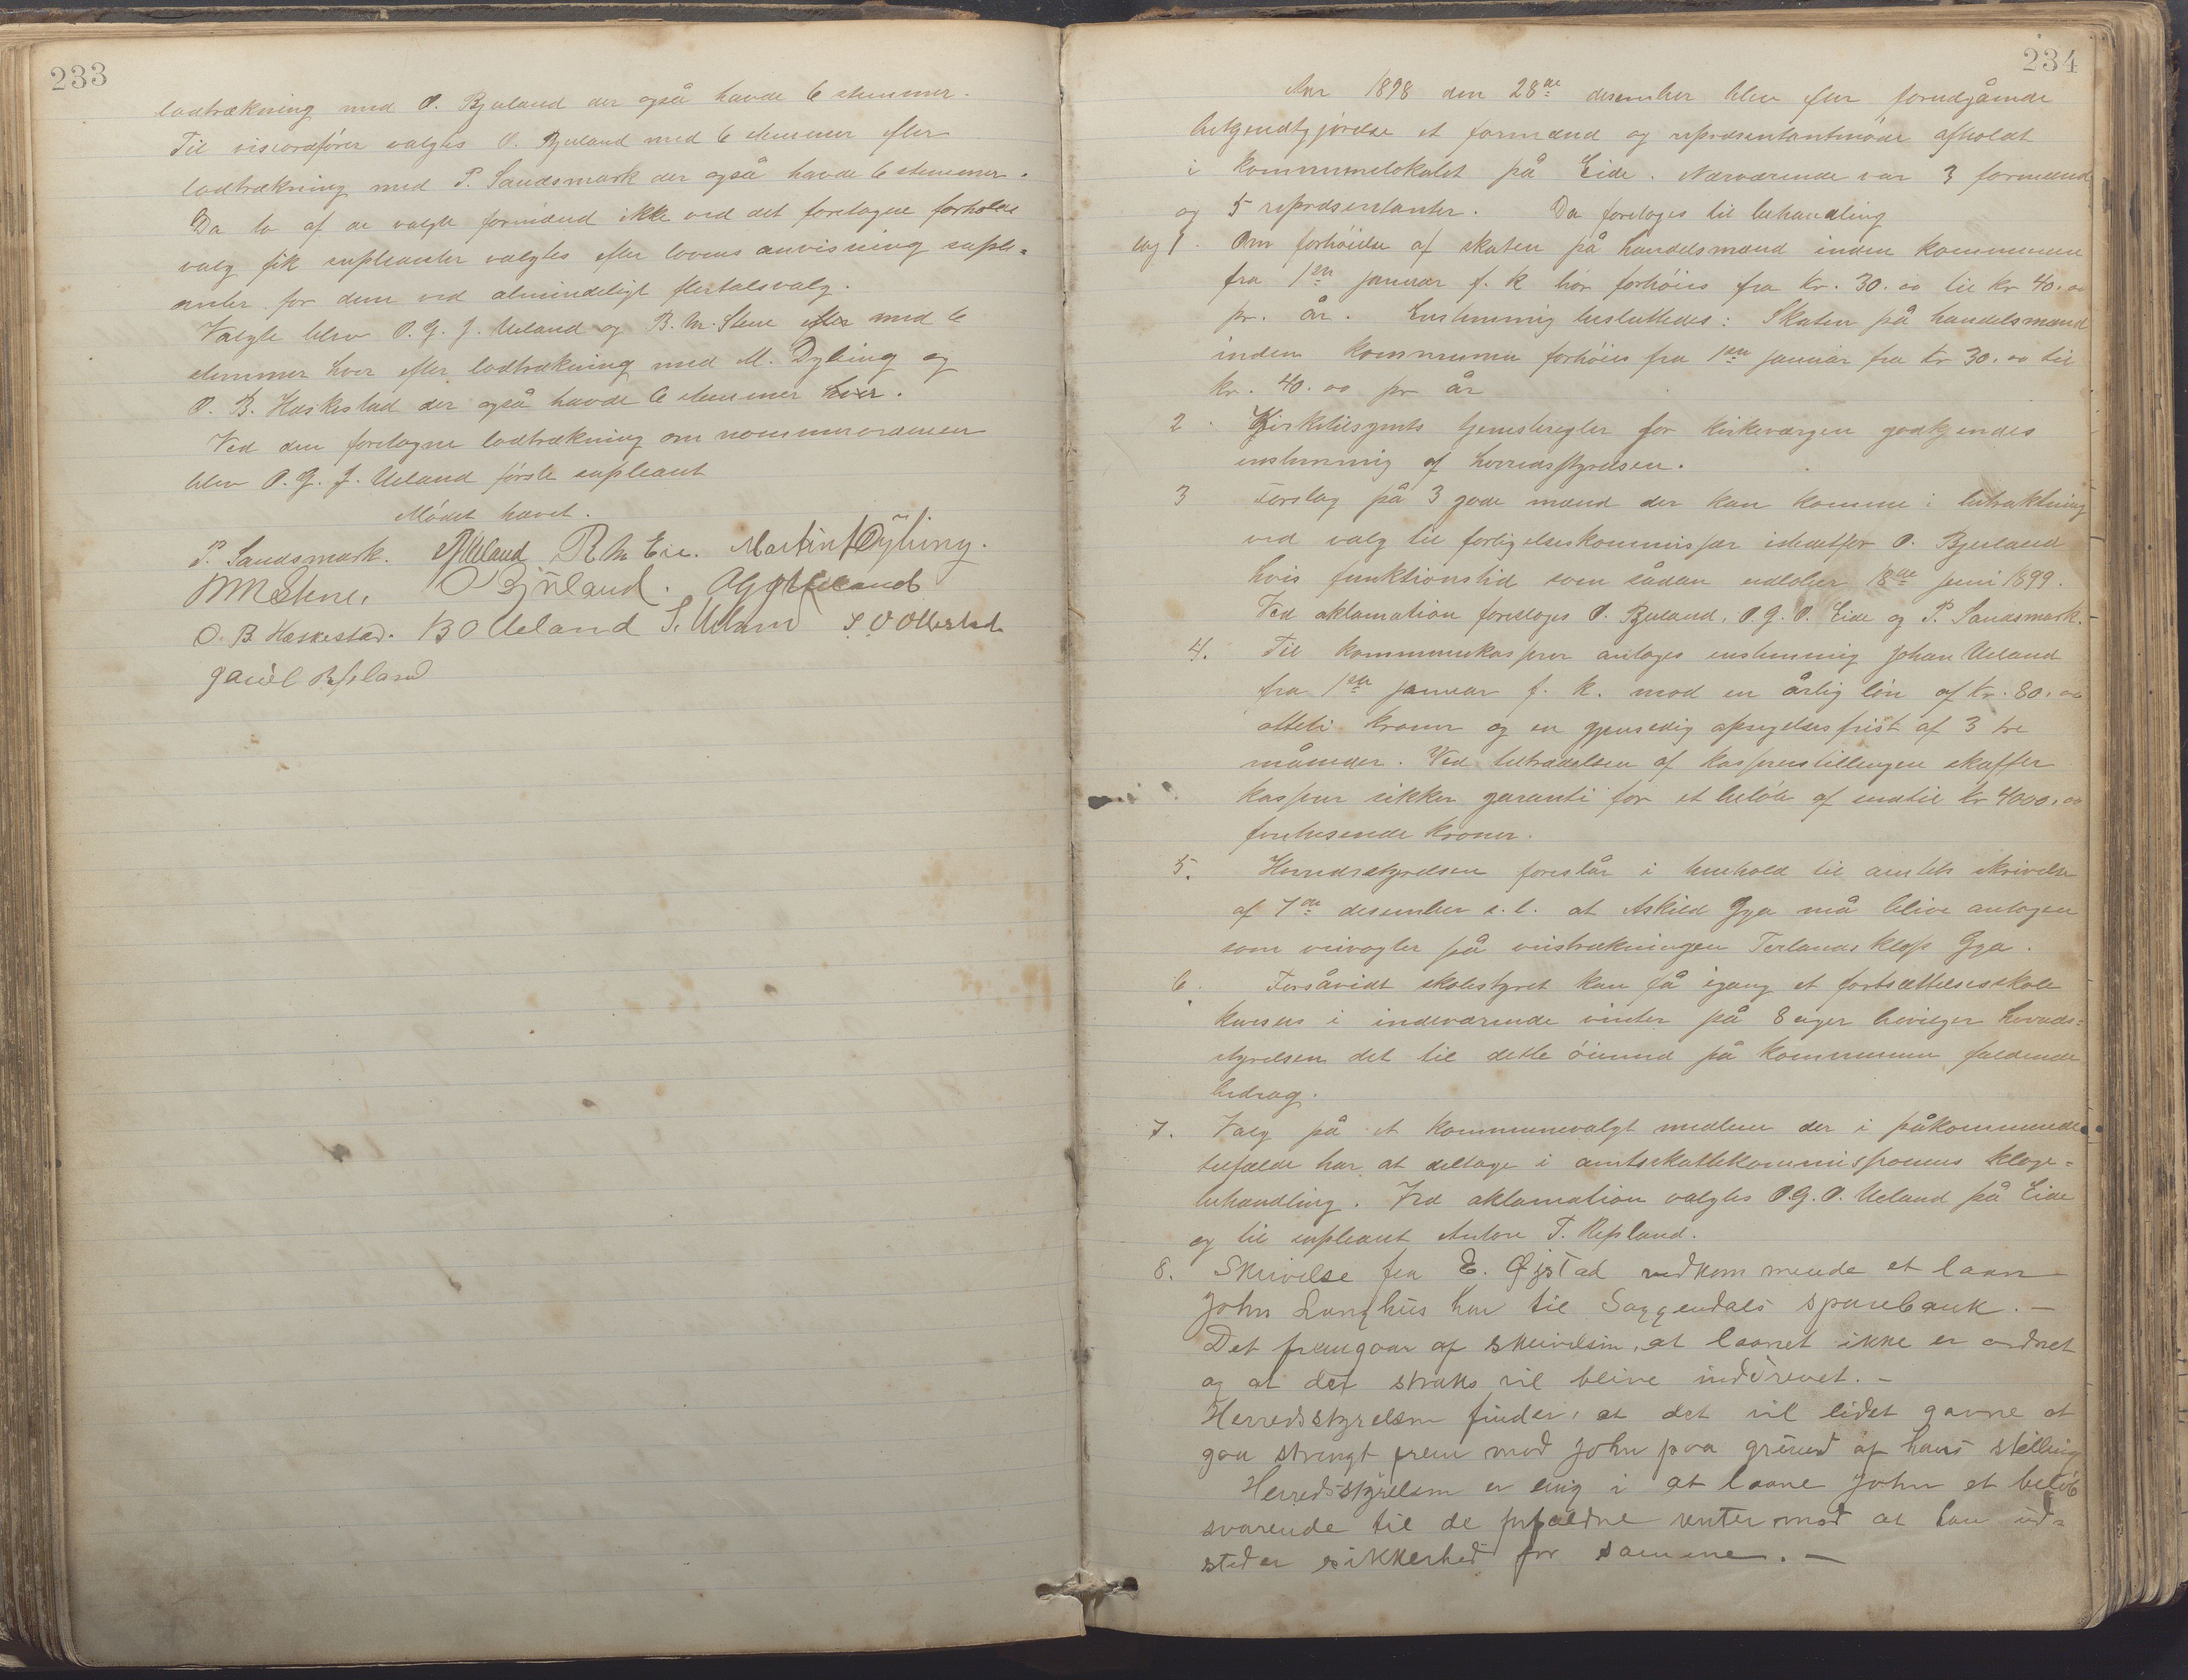 233
lodtrækning med O. Bjuland der også havde 6 stemmer.
Til viseordfører valgtes O. Bjuland med 6 stemmer efter
lodtrækning med P. Sandsmark der også havde 6 stemmer.
Da to af de valgte formænd ikke ved det foretagne forholds
valg fik supleanter valgtes efter lovens anvisning suple-
anter for dem ved almindeligt flertalsvalg.
Valgte blev O. G. J. Ueland og B. M. Stene efter med 6
stemmer hver efter lodtrækning med M. Dybing og
O. B. Haskestad der også havde 6 stemmer hver.
Ved den foretagne lodtrækning om nommerordenen
blev O. G. J. Ueland første supleant
Mødet hævet.
P. Sandsmark. Ueland R M Eie. Martin Dybing.
BMStene. O Bjuland. OGJUeland
O. B. Haskestad. B O Ueland S. Ueland S. O Ollestad
Gabriel Refsland
234
Aar 1898 den 28de desember blev efter forudgående
bekjendtgjørelse et formænd og repræsentantmøde afholdt
i kommunelokalet på Eide. Nærværende var 3 formænd
og 5 repræsentanter. Da foretoges til behandling
sag 1. Om forhøielse af skaten på handelsmænd inden kommunen
fra 1ste januar f. k bør forhøies fra kr. 30.00 til kr 40.00
pr. år. Enstemmig besluttedes: Skaten på handelsmænd
inden kommunen forhøies fra 1ste januar fra kr 30.00 til
kr. 40.00 pr år
2. Kirketilsynets tjenesteregler for kirkeværgen godkjendes
enstemmig af herredsstyrelsen.
3 Forslag på 3 gode mænd der kan komme i betraktning
ved valg til forligelseskommissær istedetfor O. Bjuland
hvis funktionstid som sådan udløber 18de juni 1899.
Ved aklamation foresloges O. Bjuland, O. G. O. Eide og P. Sandsmark.
4. Til kommunekasserer antages enstemmig Johan Ueland
fra 1ste januar f. k. mod en årlig løn af kr. 80.00
otteti kroner og en gjensedig opsigelsesfrist af 3 tre
måneder. Ved tiltrædelsen af kassererstillingen skaffer
kasserer sikker garanti for et beløb af indtil kr 4000.00
firetusende kroner.
5. Herredsstyrelsen foreslår i henhold til amtets skrivelse
af 7de desember s. l. at Askild Gya må blive antagen
som veivogter på veistrækningen Terlands klop Gya.
6. Forsåvidt skolestyret kan få igang et fortsættelsesskole
kursus i indeværende vinter på 8 uger bevilger herreds-
styrelsen det til dette øiemed på kommunen faldende
bidrag.
7. Valg på et kommunevalgt medlem der i påkommende
tilfælde har at deltage i amtsskattekommissionens klage-
behandling. Ved aklamation valgtes O. G. O. Ueland på Eide
og til supleant Anton T. Refsland.
8. Skrivelse fra E. Øjstad vedkommende et laan
John Langhus har til Soggendals sparebank. —
Det fremgaar af skrivelsen, at laanet ikke er ordnet
og at det straks vil blive inddrevet. —
Herredsstyrelsen finder, at det vil lidet gavne at
gaa strengt frem mod John paa grund af hans stilling
Herredsstyrelsen er enig i at laane John et beløb
svarende til de forfaldne renter mod at han ud-
steder sikkerhed for samme. —